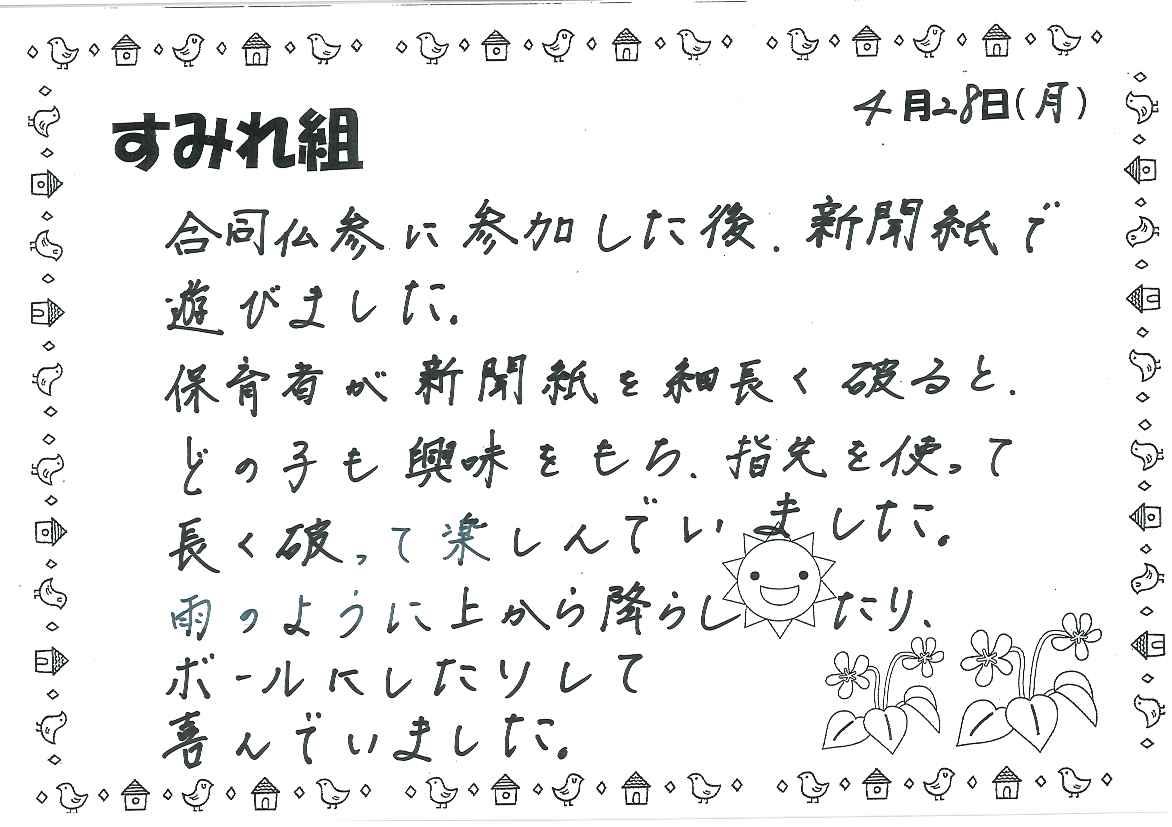 4月28日(月)
すみれ組
合同仏参に参加した後、新聞紙で
遊びました。
保育者が新聞紙を細長く破ると、
どの子も興味をもち、指先を使って
長く破って楽しんでいました。
雨のように上から降らしたり、
ボールにしたりして
喜んでいました。